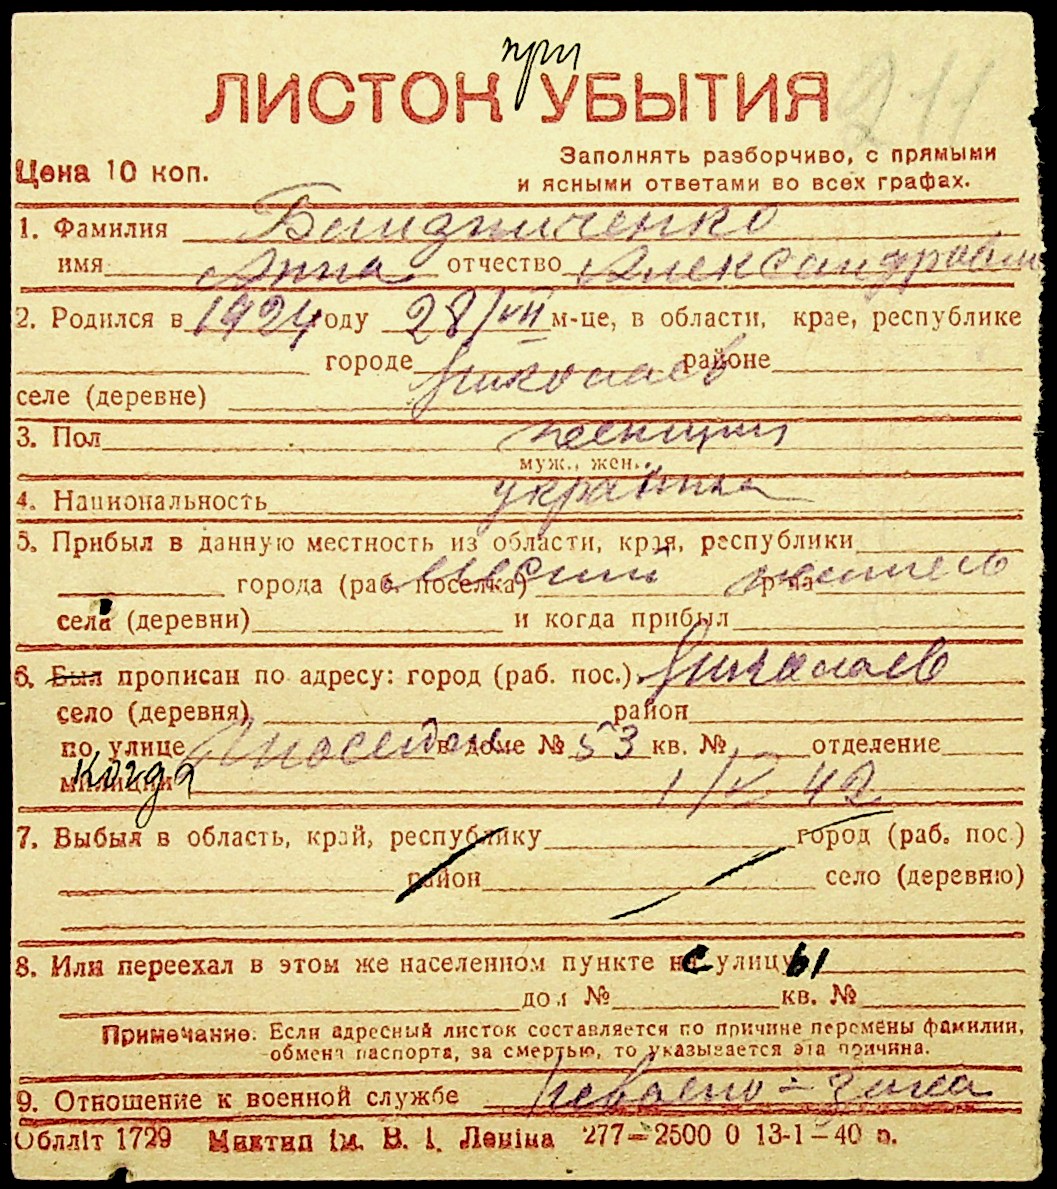 при
ЛИСТОК УБЫТИЯ
211
Цена 10 коп.
Заполнять разборчиво, с прямыми
и ясными ответами во всех графах.
1. Фамилия
имя Анна отчество Александровна
2. Родился в 1924 году 28/VII м-це, в области, крае, республике
городе Николаев районе
селе (деревне)
3. Пол женщин
муж., жен.
4. Национальность украинка
5. Прибыл в данную местность из области, края, республики
города (раб. поселка) местный р-на житель
села (деревни) и когда прибыл
6. Был прописан по адресу: город (раб. пос.) Николаев
село (деревня) район
по улице в доме № 53 кв. № отделение
милиции когда 1/V 42
7. Выбыл в область, край, республику город (раб. пос.)
район село (деревню)
8. Или переехал в этом же населенном пункте с улицы
дом № кв. №
Примечание: Если адресный листок составляется по причине перемены фамилии,
обмена паспорта, за смертью, то указывается эта причина.
9. Отношение к военной службе
Обллiт 1729 Миктип iм. В. I. Ленiна 277—2500 0 13-1-40 р.